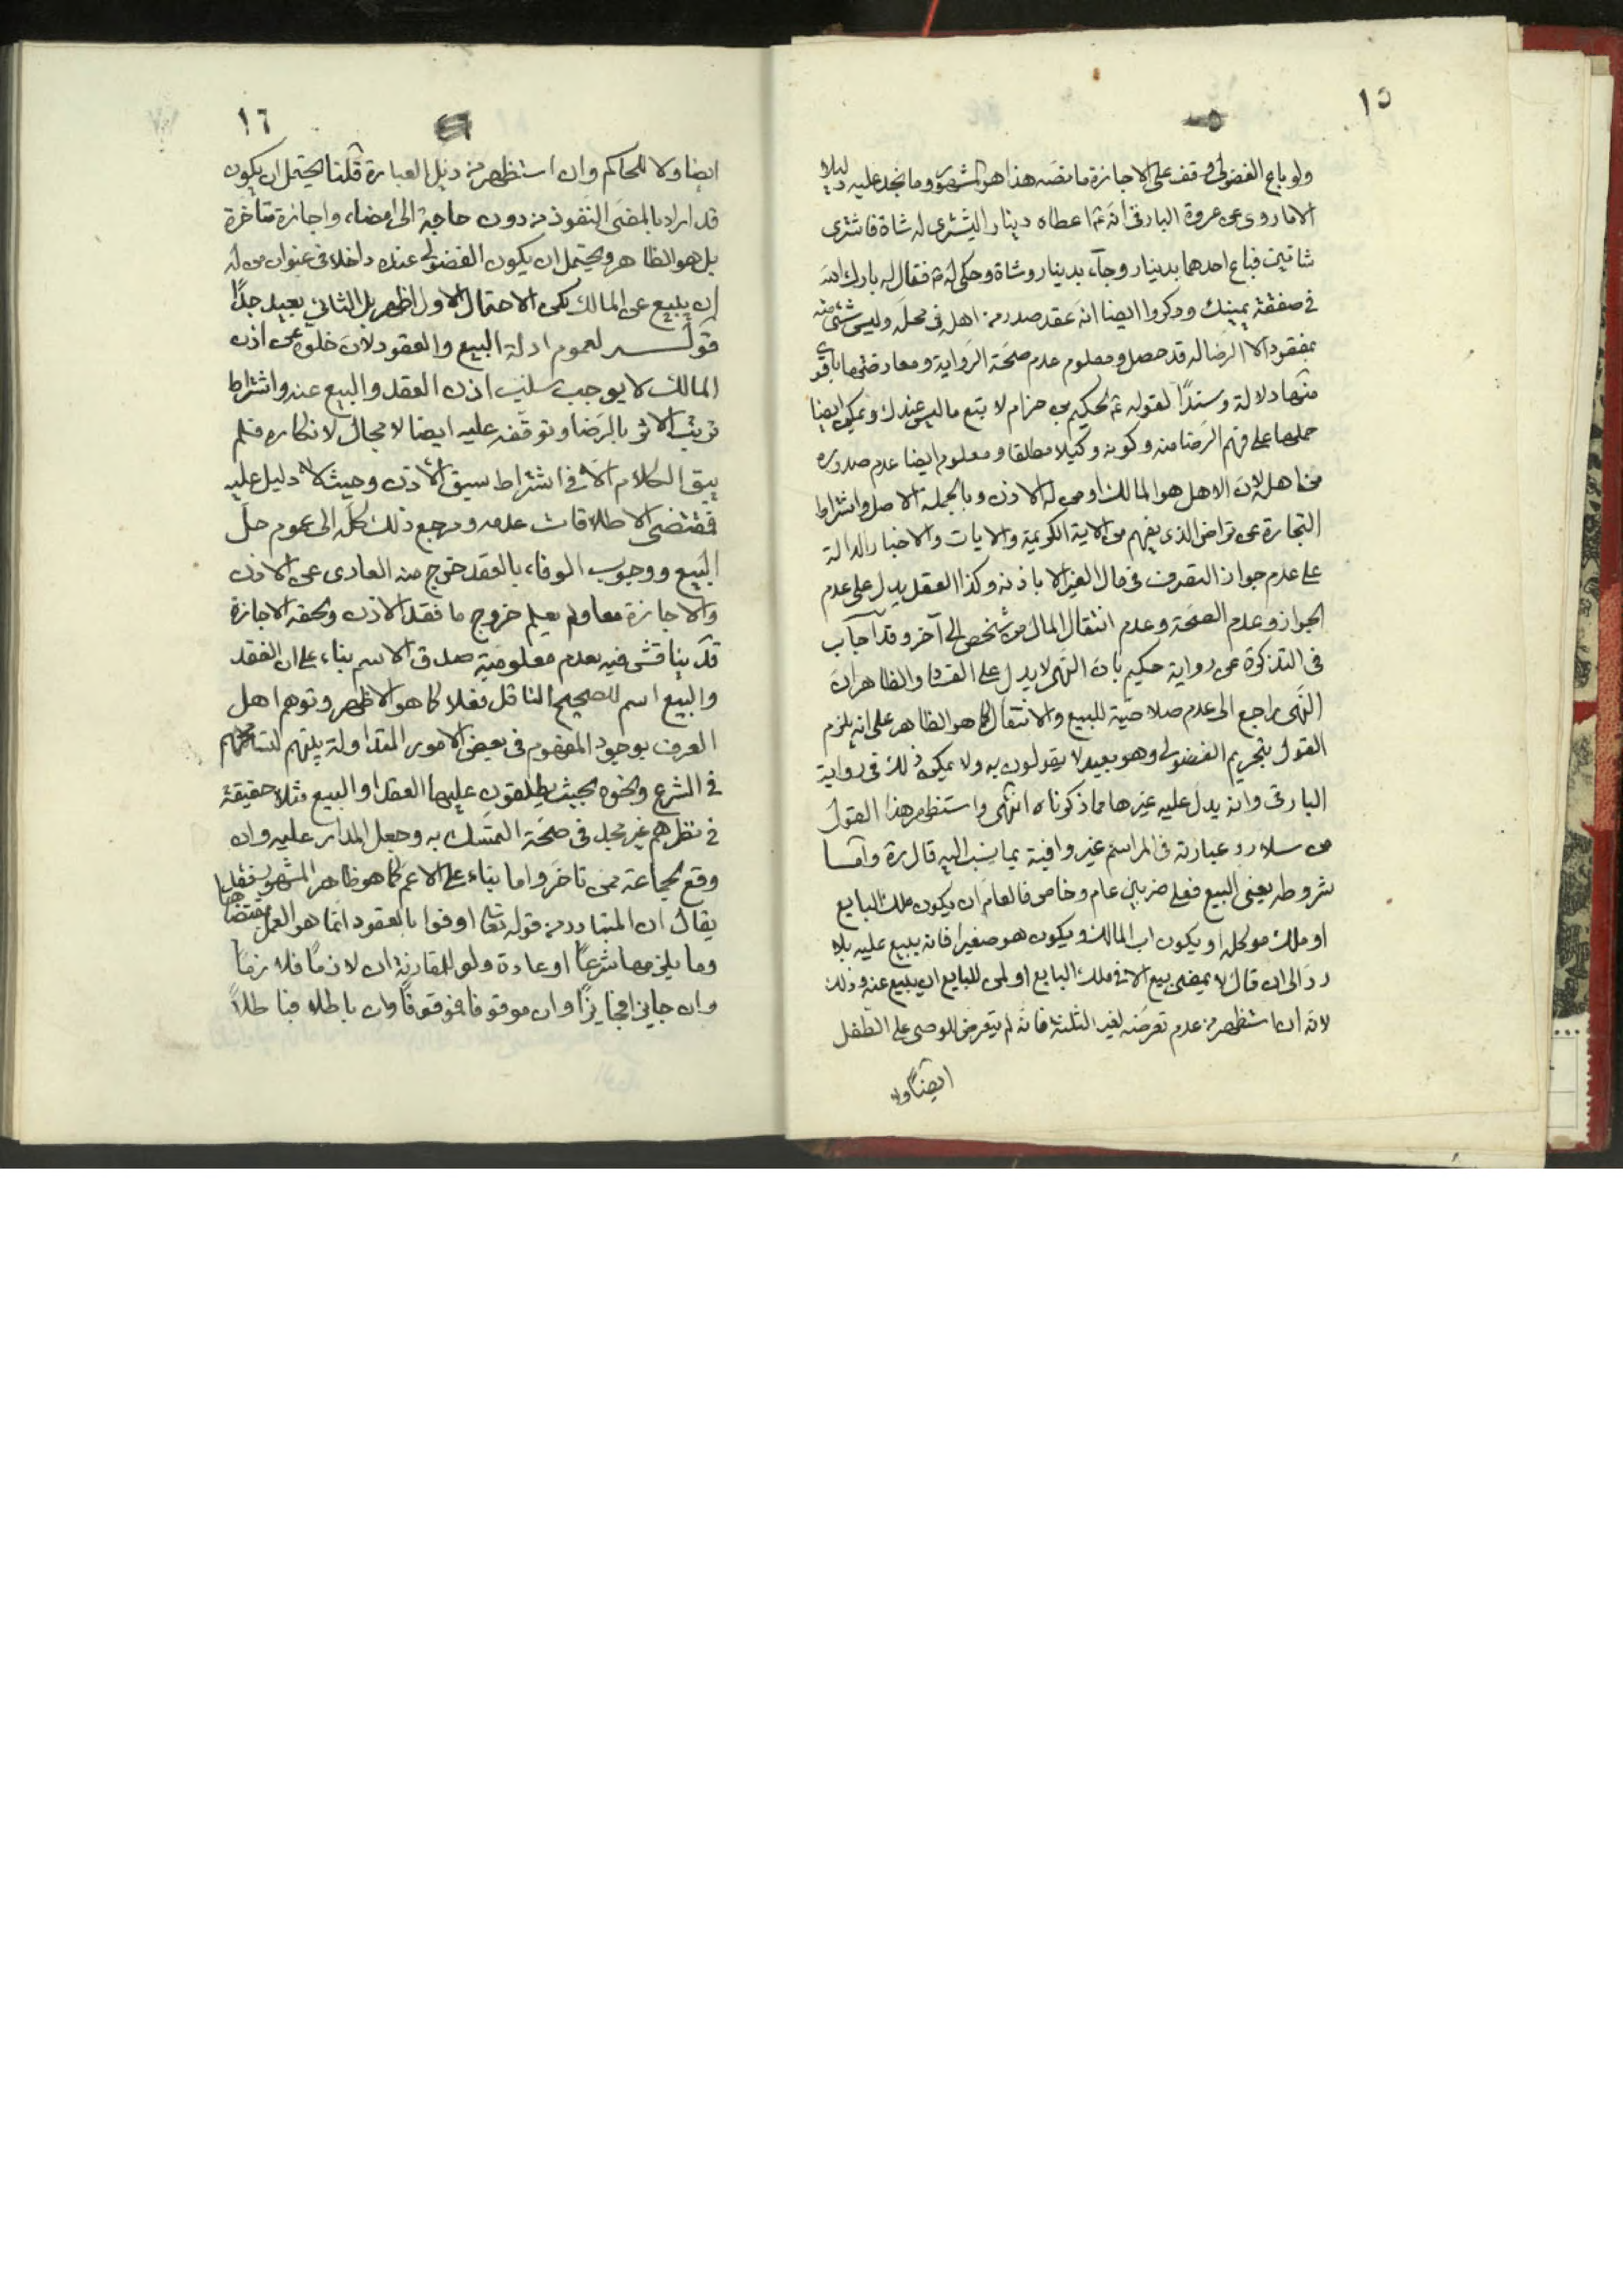 ١٥
ولو باع الفضولى وقف على الاجازة ما نصه هذا هو المشهور وما نجد عليه دليلا
الا ما روى عن عروة البارقى انه ع اعطاه دينار اليشترى له شاة فاشترى
شاتين فباع احدهما بدينار وجاء بدينار وشاة وحكى له ع فقال له بارك الله
فى صفقة يمينك وذكروا ايضا انه عقد صدر من اهله فى محله وليس شئ منه
بمفقود الا الرضا له قد حصل ومعلوم عدم صحة الرواية ومعارضتها باقوى
منها دلالة وسندًا لقوله ع لحكيم بن حزام لا بتع ما ليس عندك ويمكن ايضا
حملها على فهم الرضا منه وكونه وكيلا مطلقا ومعلوم ايضا عدم صدوره
من اهله لان الاهل هو المالك او من له الاذن وبالجملة الاصل واشتراط
التجارة عن تراض الذى يفهم من الاية الكريمة والايات والاخبار الدالة
على عدم جواز التصرف فى مال الغير الا باذنه وكذا العقل يدل على عدم
الجواز وعدم الصحة وعدم انتقال المال من شخص الى آخر وقد اجاب
فى التذكرة عن رواية حكيم بان النهى لا يدل على الفساد والظاهر ان
النهى راجع الى عدم صلاحية للبيع والانتقال كما هو الظاهر على انه يلزم
القول بتحريم الفضولى وهو بعيد لا يقولون به ولا يمكن ذلك فى رواية
البارقى وانه يدل عليه غيرها مما ذكرناه انتهى واستظهر هذا القول
من سلار رد عبارته فى المراسم غير وافية بما ينسب اليه قال ره واما
شروطه يعنى البيع فعلى ضربين عام وخاص فالعام ان يكون ملك البايع
او ملك موكله او يكون اب المالك ويكون هو صغيرا فانه يبيع عليه بلا
رد الى ان قال لا يمضى بيع الا فى ملك البايع او لمن للبايع ان يبيع عنه وذلك
لانه ان استظهر من عدم تعرضه لغير الثلثة فانه لم يتعرض للوصى على الطفل
ايضًا ولا
١٦
ايضا ولا للحاكم وان استظهر من ذيل العبارة قلنا يحتمل ان يكون
قد اراد بالمضى النفوذ من دون حاجة الى امضاء واجازة متاخرة
بل هو الظاهر ويحتمل ان يكون الفضولى عنده داخلا فى عنوان من له
ان يبيع عن المالك لكن الاحتمال الاول اظهر بل الثانى بعيد جدًا
قولـــه لعموم ادلة البيع والعقود لان خلوه عن اذن
المالك لا يوجب سلب اذن العقد والبيع عنه واشتراط
ترتب الاثر بالرضا وتوقفه عليه ايضا لا مجال لانكاره فلم
يبق الكلام الا فى اشتراط سبق الاذن وحيث لا دليل عليه
فمقتضى الاطلاقات عدمه ومرجع ذلك كله الى عموم حل
البيع ووجوب الوفاء بالعقد خرج منه العارى عن الاذن
والاجازة معا ولم يعلم خروج ما فقد الاذن ولحقه الاجازة
قد يناقش فيه بعدم معلومية صدق الاسم بناء على ان العقد
والبيع اسم للصحيح الناقل فعلا كما هو الاظهر وتوهم اهل
العرف بوجود المفهوم فى بعض الامور المتداولة بينهم لتسامحهم
فى الشرع ونحوه بحيث يطلقون عليها العقد او البيع مثلا حقيقة
فى نظرهم غير مجد فى صحة التمسك به وجعل المدار عليه وان
وقع لجماعة ممن تاخر واما بناء على الاعم كما هو ظاهر المشهور فقد
يقال ان المتبادر من قوله تعا اوفوا بالعقود انما هو العمل بمقتضاها
وما يلزمها شرعًا او عادة ولو للمقارنة ان لازمًا فلازمًا
وان جايزا فجايزًا وان موقوفا فموقوفًا وان باطلا فباطلاً